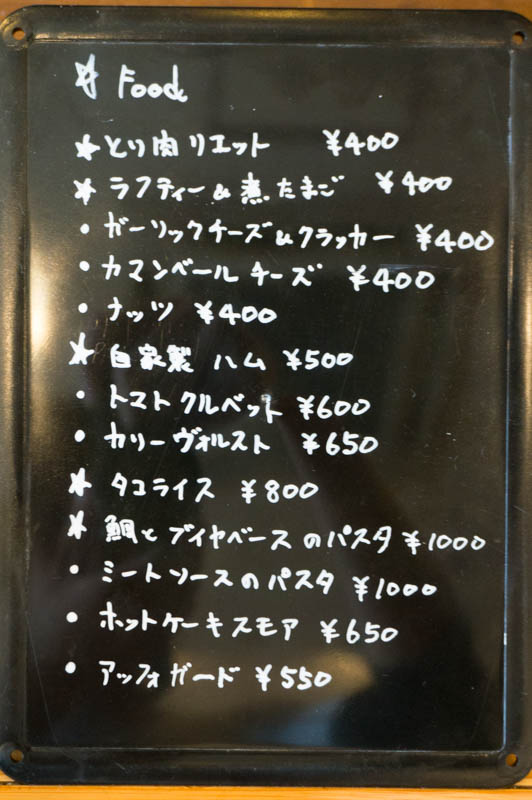 ☆ Food
★ とり肉リエット ¥400
★ ラフティー&煮たまご ¥400
・ガーリックチーズ&クラッカー ¥400
・カマンベールチーズ ¥400
・ナッツ ¥400
★ 自家製ハム ¥500
・トマトクルベット ¥600
・カリーヴォルスト ¥650
★ タコライス ¥800
★ 鯛とブイヤベースのパスタ ¥1000
・ミートソースのパスタ ¥1000
・ホットケーキスモア ¥650
・アッフォガード ¥550